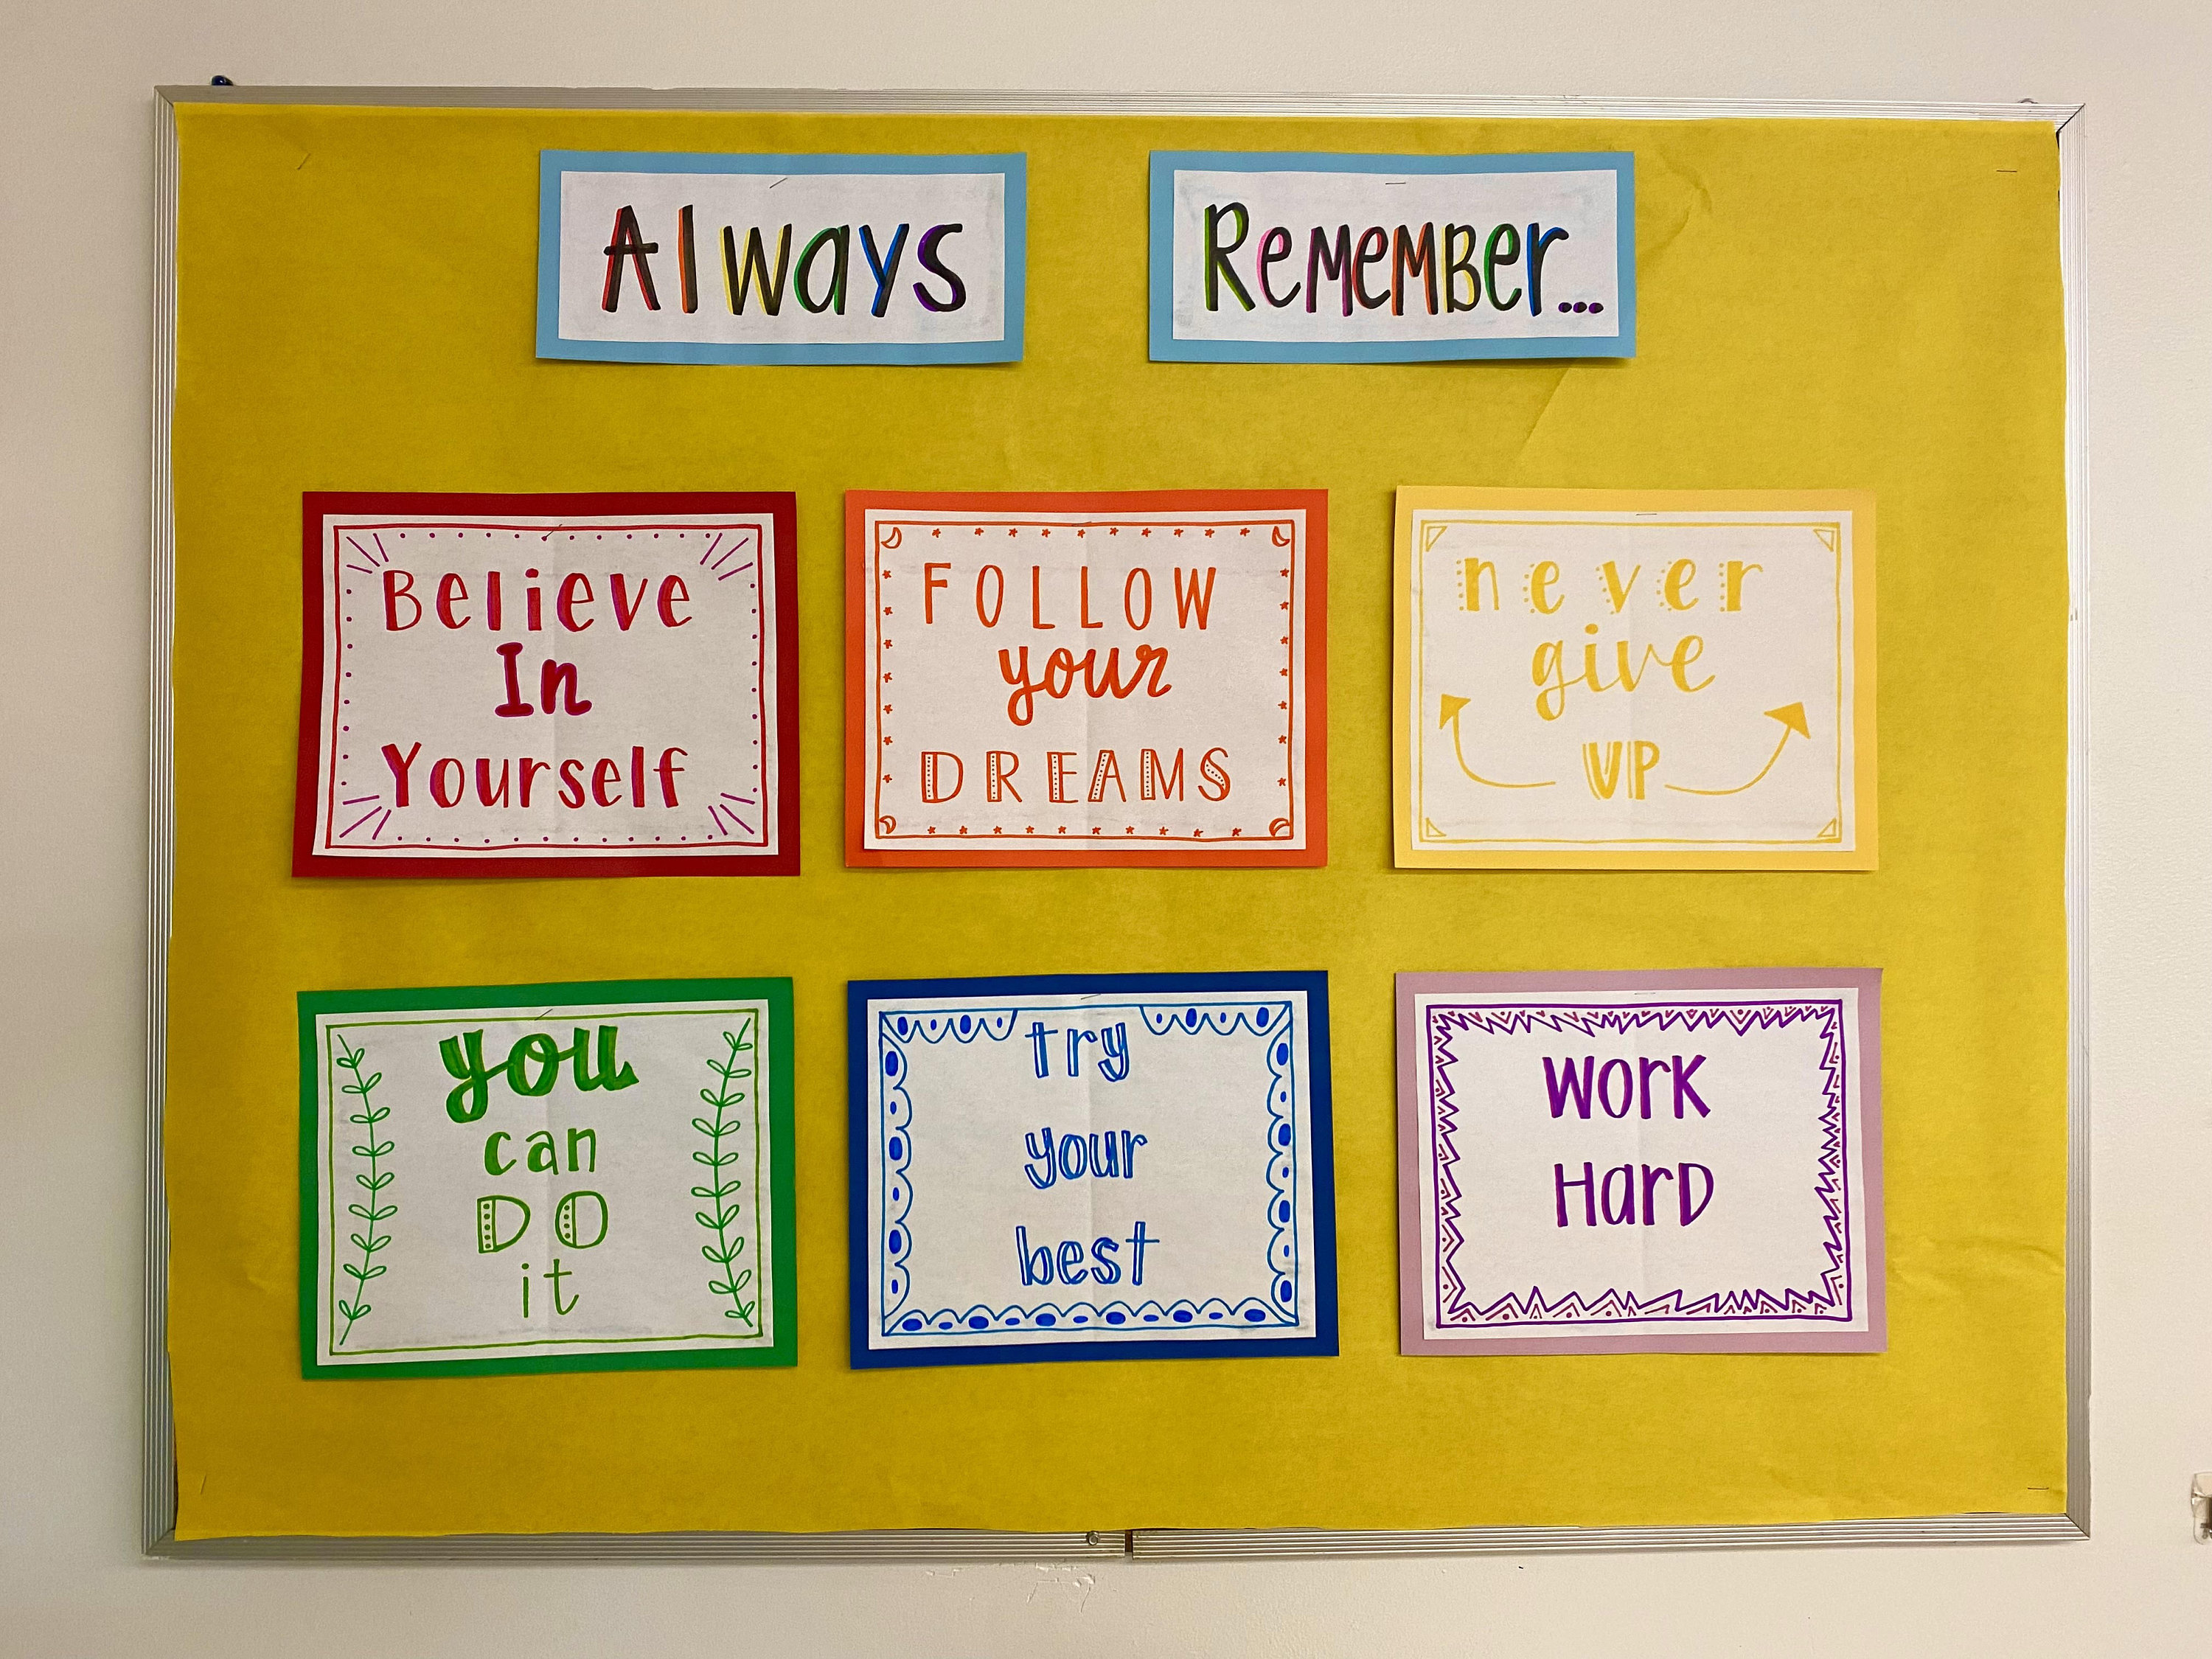 Always Remember...
Believe
In
Yourself
FOLLOW
your
DREAMS
never
give
UP
you
can
DO
it
try
your
best
Work
HarD